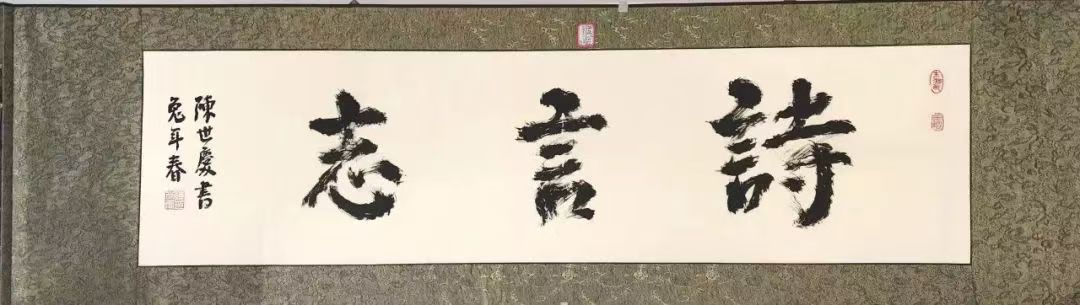 詩言志
陳世慶書
兔年春